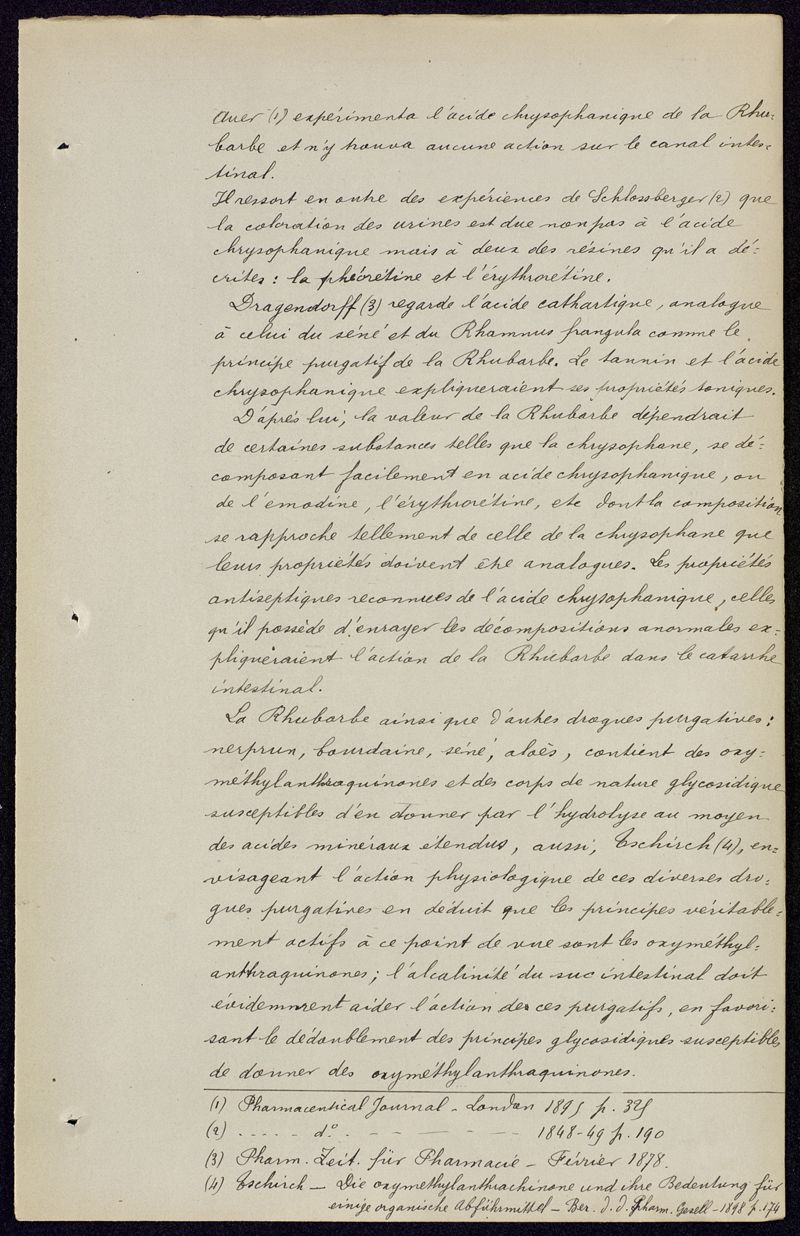 Auer (1) expérimenta l'acide chrysophanique de la Rhu-
barbe et n'y trouva aucune action sur le canal intes-
tinal.
Il ressort en outre des expériences de Schlossberger (2) que
la coloration des urines est due non pas à l'acide
chrysophanique mais à deux des résines qu'il a dé-
crites : la phéorétine et l'érythrorétine.
Dragendorff (3) regarde l'acide cathartique, analogue
à celui du séné et du Rhamnus frangula comme le
principe purgatif de la Rhubarbe. Le tannin et l'acide
chrysophanique expliqueraient ses propriétés toniques.
D'après lui, la valeur de la Rhubarbe dépendrait
de certaines substances telles que la chrysophane, se dé-
composant facilement en acide chrysophanique, ou
de l'émodine, l'érythrorétine, etc dont la composition
se rapproche tellement de celle de la chrysophane que
leurs propriétés doivent être analogues. Les propriétés
antiseptiques reconnues de l'acide chrysophanique, celles
qu'il possède d'enrayer les décompositions anormales ex-
pliqueraient l'action de la Rhubarbe dans le catarrhe
intestinal.
La Rhubarbe ainsi que d'autres drogues purgatives :
nerprun, bourdaine, séné, aloès, contient des oxy-
méthylanthraquinones et des corps de nature glycosidique
susceptibles d'en donner par l'hydrolyse au moyen
des acides minéraux étendus, aussi, Tschirch (4), en-
visageant l'action physiologique de ces diverses dro-
gues purgatives en déduit que les principes véritable-
ment actifs à ce point de vue sont les oxyméthyl-
anthraquinones ; l'alcalinité du suc intestinal doit
évidemment aider l'action de ces purgatifs, en favori-
sant le dédoublement des principes glycosidiques susceptibles
de donner des oxyméthylanthraquinones.
(1) Pharmaceutical Journal - London 1895 p. 325
(2) - - - - - d° - - - - - - - 1848-49 p. 190
(3) Pharm. Zeit. für Pharmacie - Février 1878.
(4) Tschirch - Die oxymethylanthrachinone und ihre Bedeutung für
einige organische Abführmittel - Ber. d. d. Pharm. Gesell - 1898 p. 174